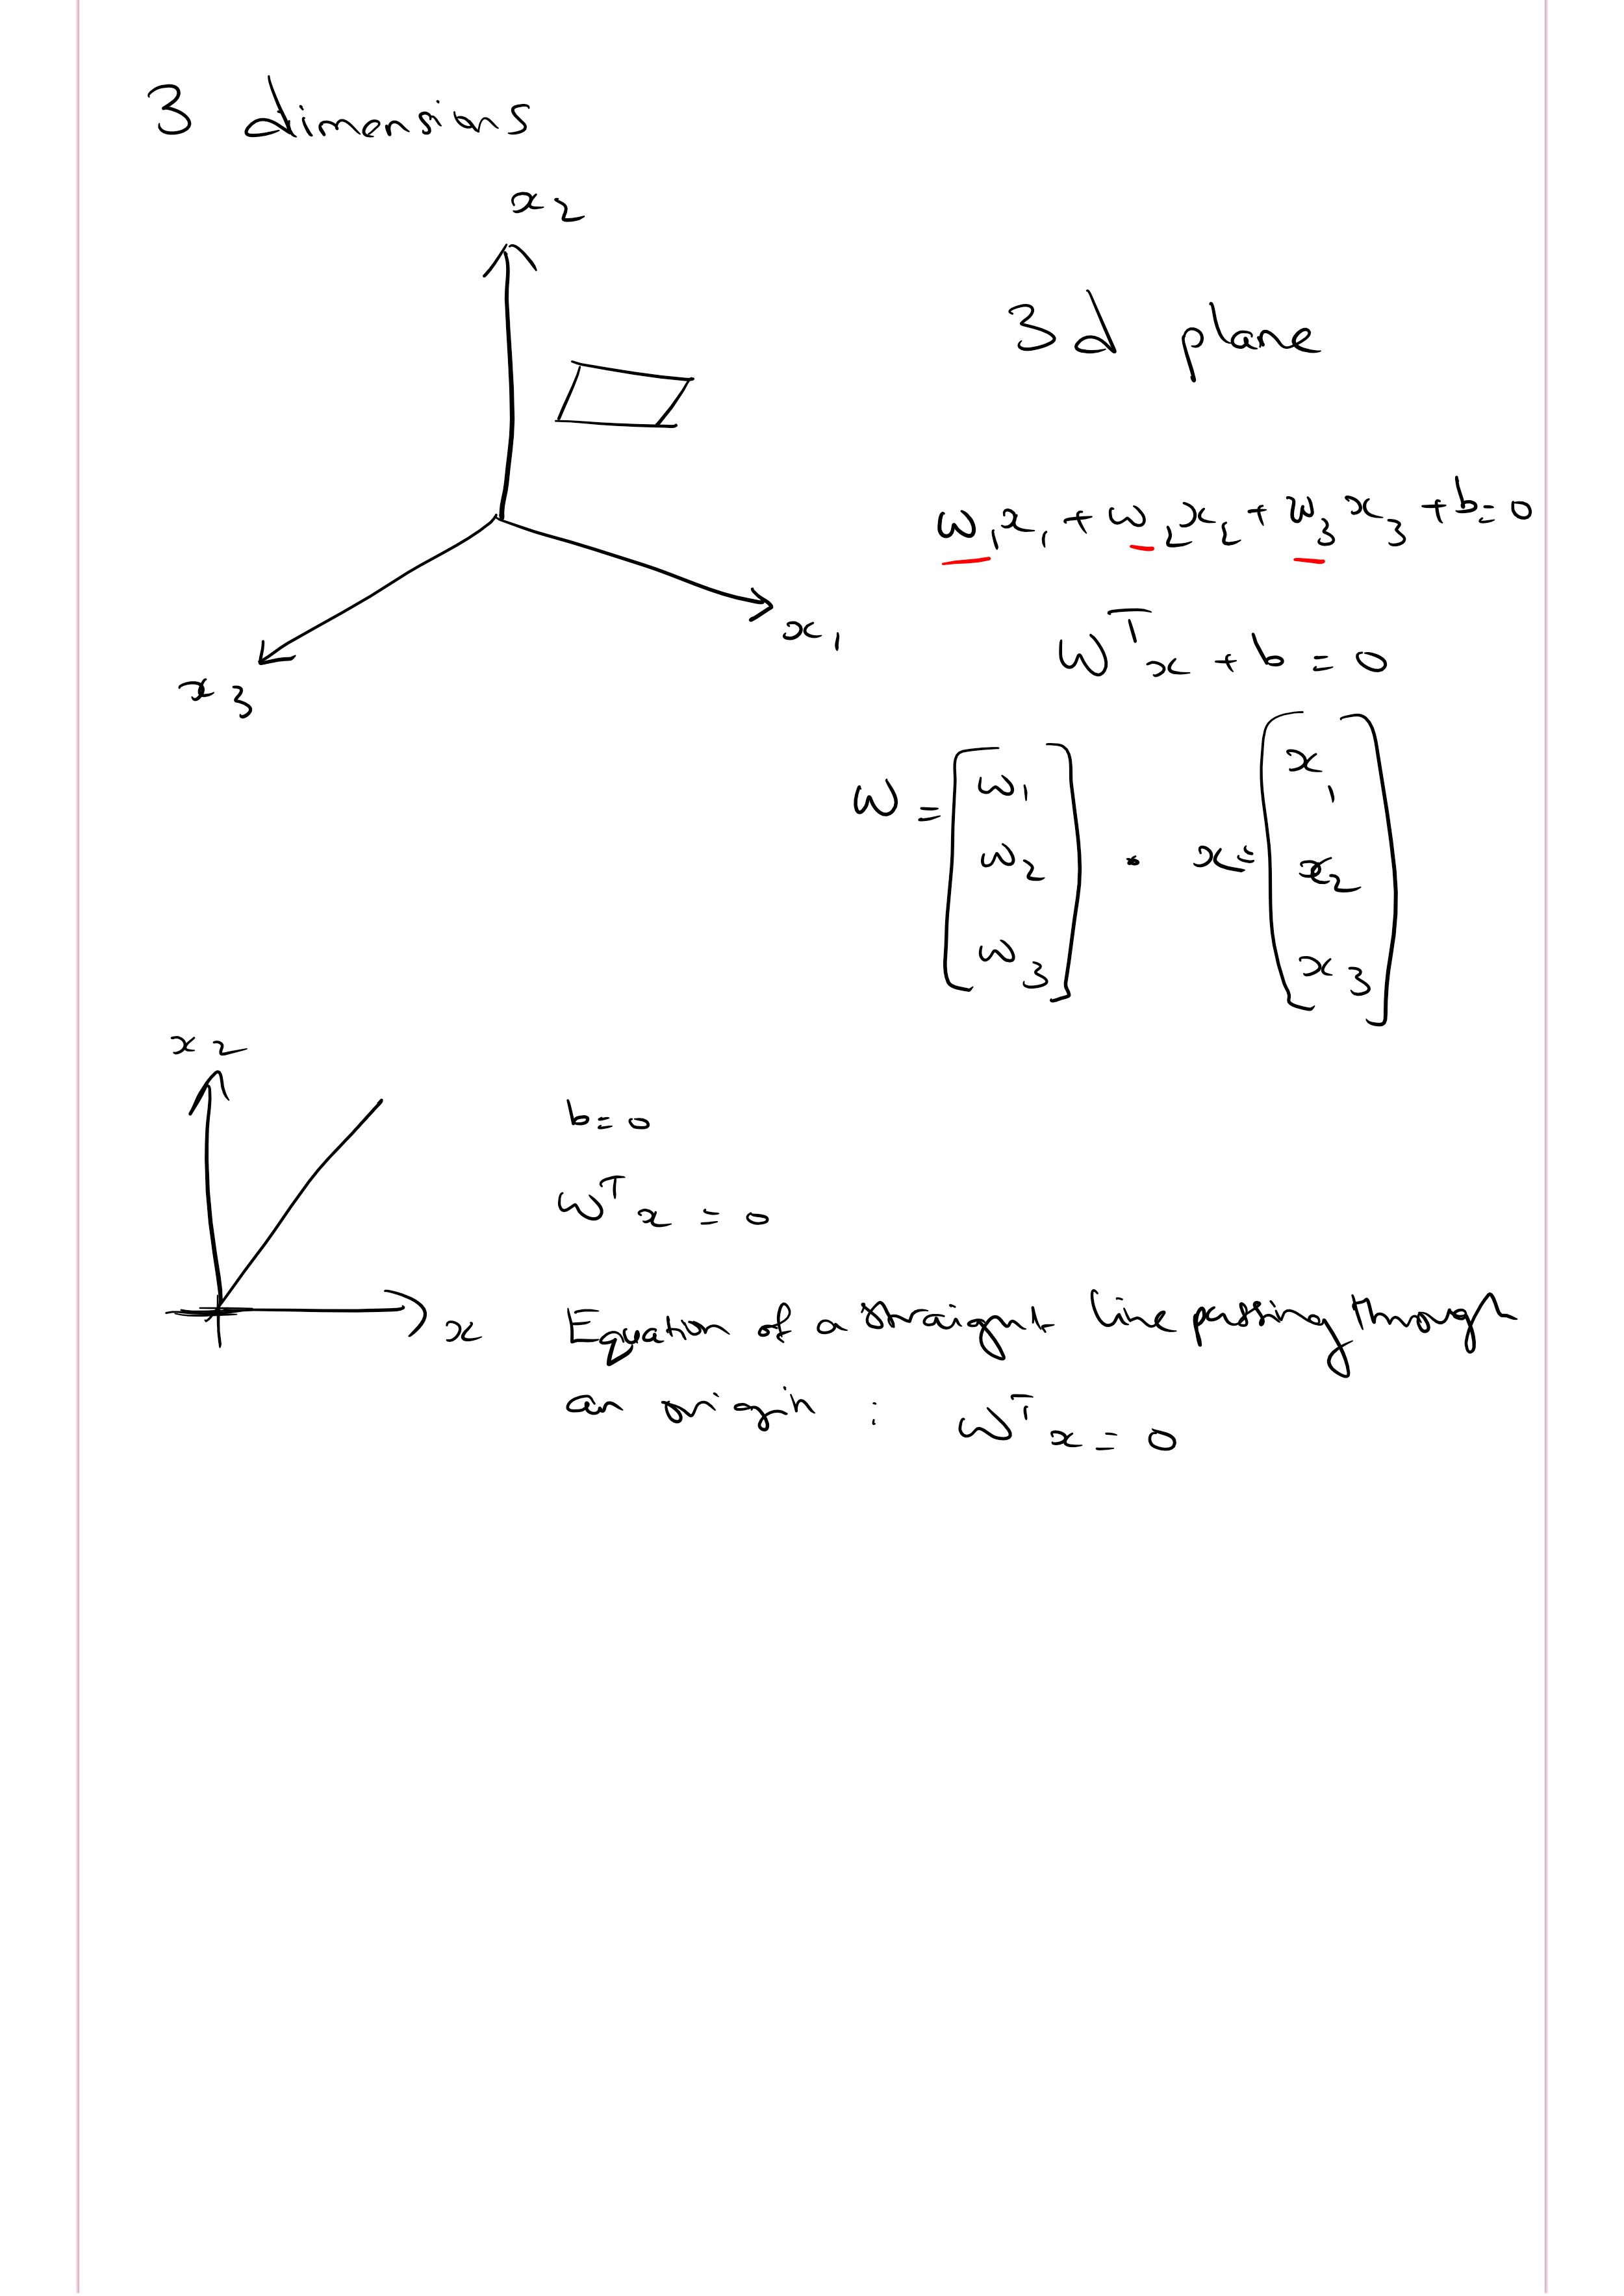 3 dimensions
x₂
3d plane
w₁x₁ + w₂x₂ + w₃x₃ + b = 0
x₁
wᵀx + b = 0
x₃
w = [w₁ w₂ w₃] · x = [x₁ x₂ x₃]
x₂
b = 0
wᵀx = 0
x
Equation of a straight line passing through
an origin : wᵀx = 0